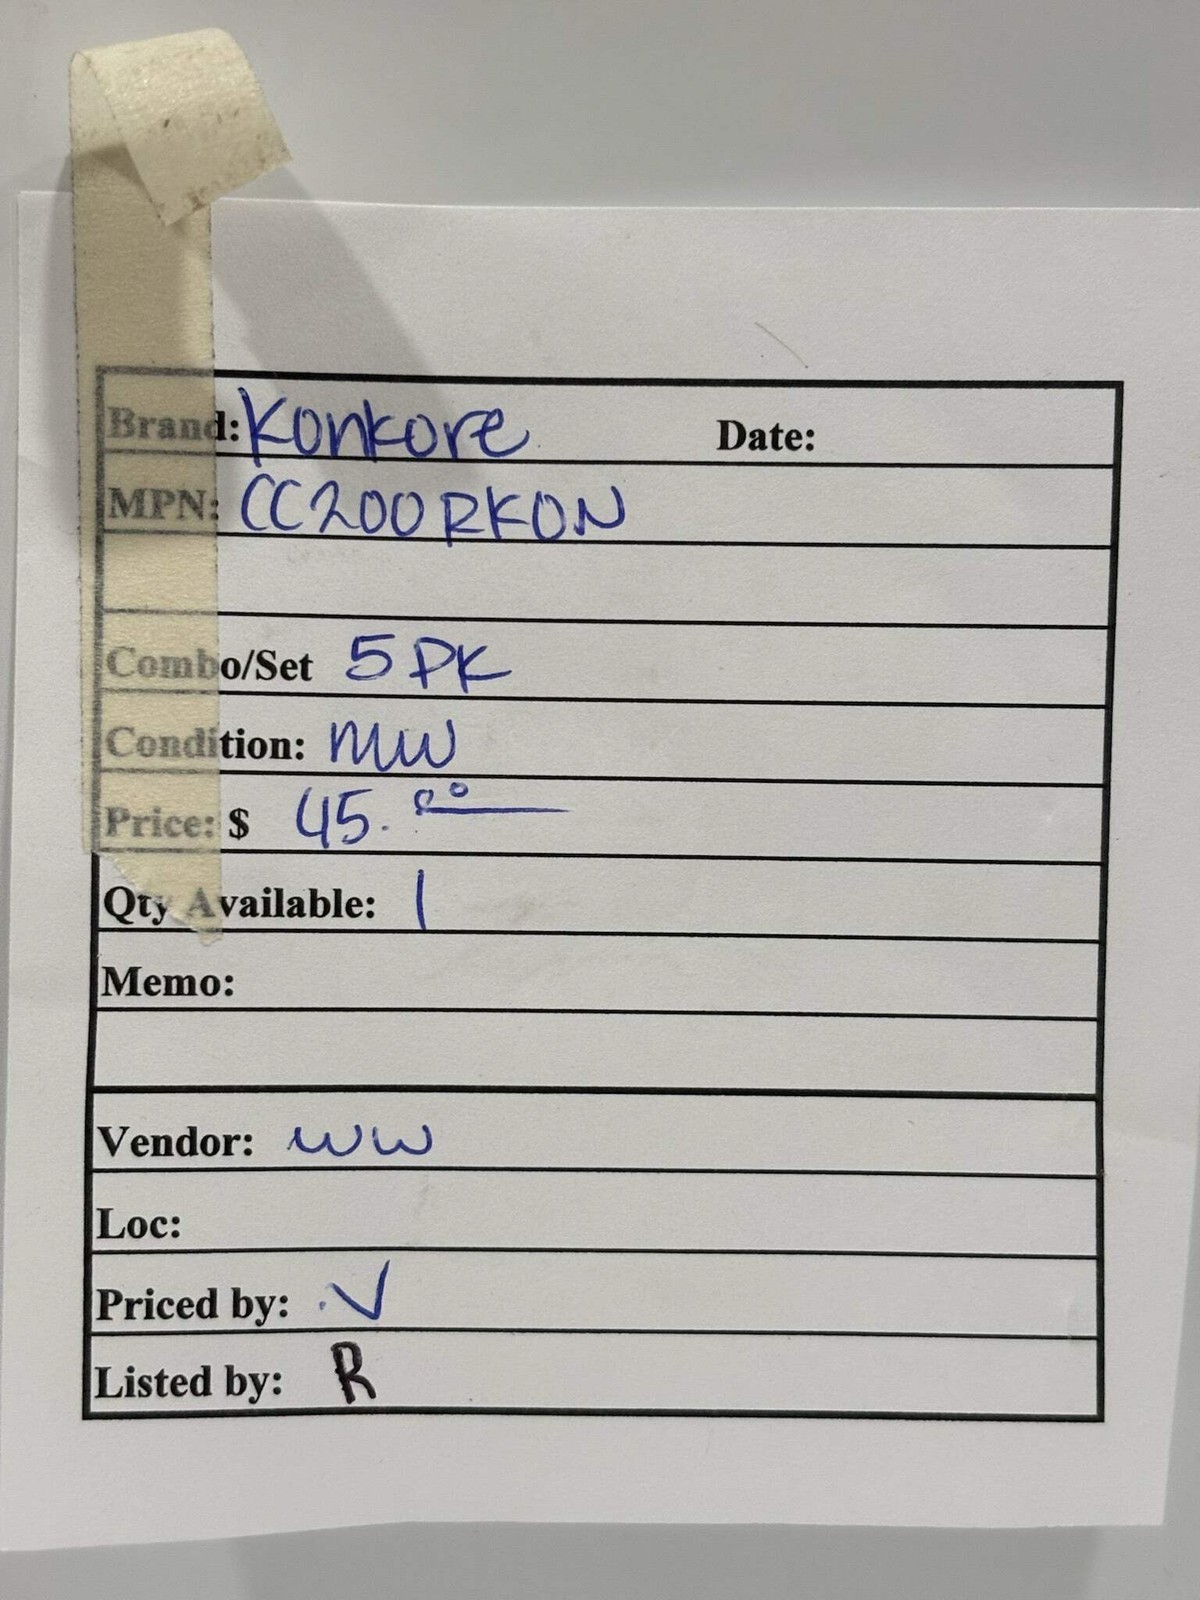 Brand: Konkore Date:
MPN: CC200RKON
Combo/Set 5PK
Condition: MW
Price: $ 45.00
Qty Available: 1
Memo:
Vendor: WW
Loc:
Priced by: V
Listed by: R